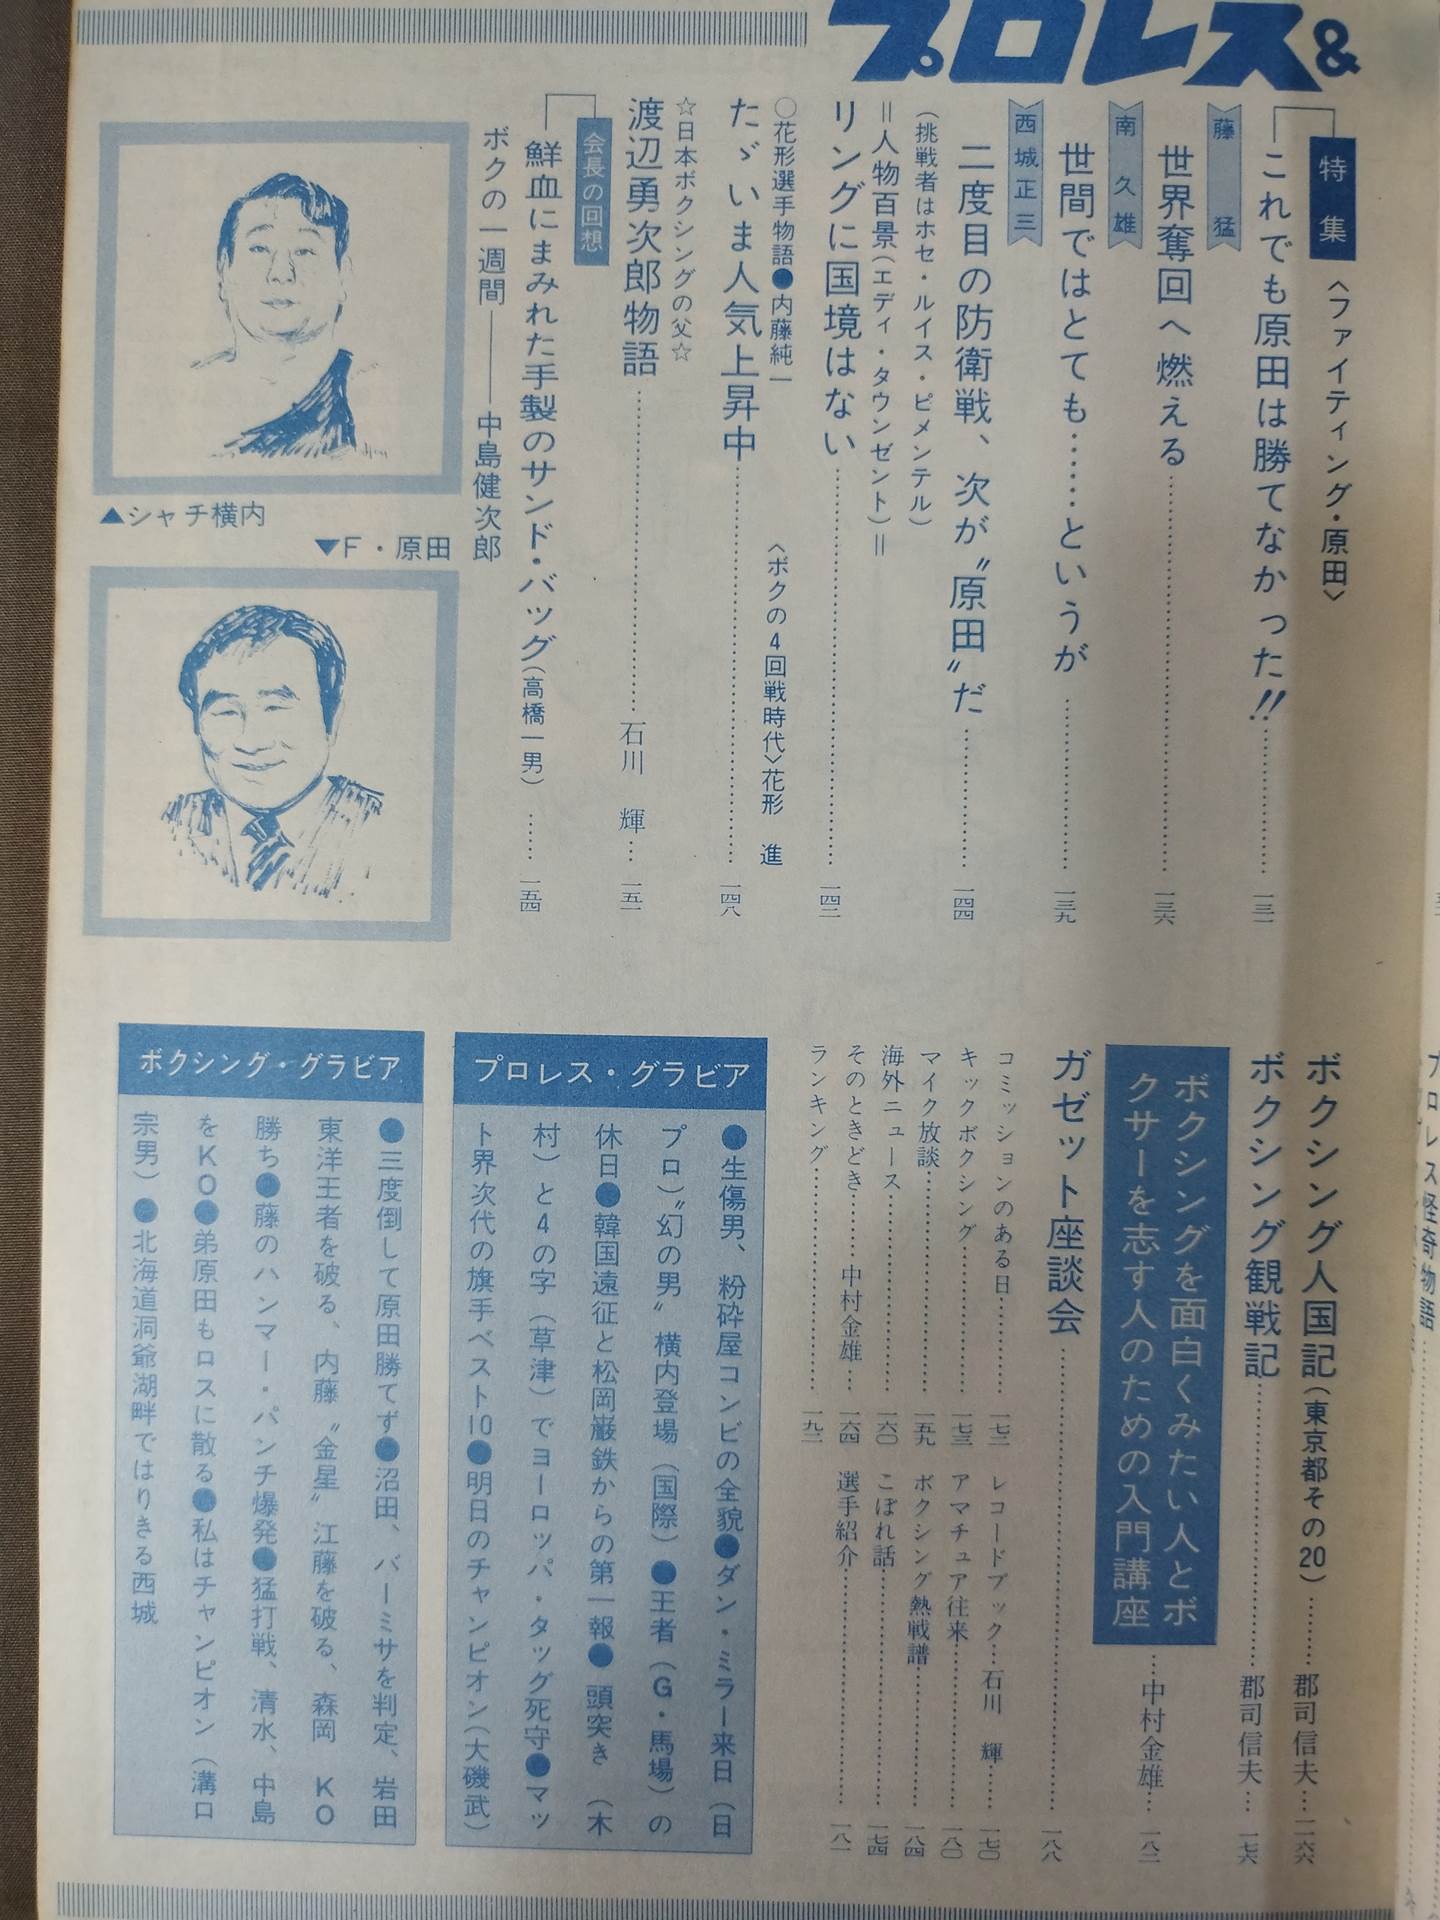 プロレス&
特集
〈ファイティング・原田〉
これでも原田は勝てなかった!!……一三一
藤猛
世界奪回へ燃える……一三六
南久雄
世間ではとても……というが……一三九
西城正三
二度目の防衛戦、次が〝原田〟だ……一四四
(挑戦者はホセ・ルイス・ピメンテル)
＝人物百景(エディ・タウンゼント)＝
リングに国境はない……一四二
○花形選手物語●内藤純一
〈ボクの4回戦時代〉花形 進
たゞいま人気上昇中……一四八
☆日本ボクシングの父☆
渡辺勇次郎物語……石川 輝…一五一
会長の回想
鮮血にまみれた手製のサンド・バッグ(高橋一男)……一五四
ボクの一週間――中島健次郎
▲シャチ横内
▼F・原田
ボクシング人国記(東京都その20)……郡司信夫…一六六
ボクシング観戦記……郡司信夫…一七六
ボクシングを面白くみたい人とボ
クサーを志す人のための入門講座
…中村金雄…一八二
ガゼット座談会……一八八
コミッションのある日……一七二
キックボクシング……一七三
マイク放談……一五九
海外ニュース……一六〇
そのときどき……中村金雄…一六四
ランキング……一九二
レコードブック……石川 輝…一七〇
アマチュア往来……一八〇
ボクシング熱戦譜……一八四
こぼれ話……一七四
選手紹介……一八一
プロレス・グラビア
●生傷男、粉砕屋コンビの全貌●ダン・ミラー来日(日
プロ)〝幻の男〟横内登場(国際)●王者(G・馬場)の
休日●韓国遠征と松岡巌鉄からの第一報●頭突き(木
村)と4の字(草津)でヨーロッパ・タッグ死守●マッ
ト界次代の旗手ベスト10●明日のチャンピオン(大磯武)
ボクシング・グラビア
●三度倒して原田勝てず●沼田、バーミサを判定、岩田
東洋王者を破る、内藤〝金星〟江藤を破る、森岡 KO
勝ち●藤のハンマー・パンチ爆発●猛打戦、清水、中島
をKO●弟原田もロスに散る●私はチャンピオン(溝口
宗男)●北海道洞爺湖畔ではりきる西城
プロレス怪奇物語